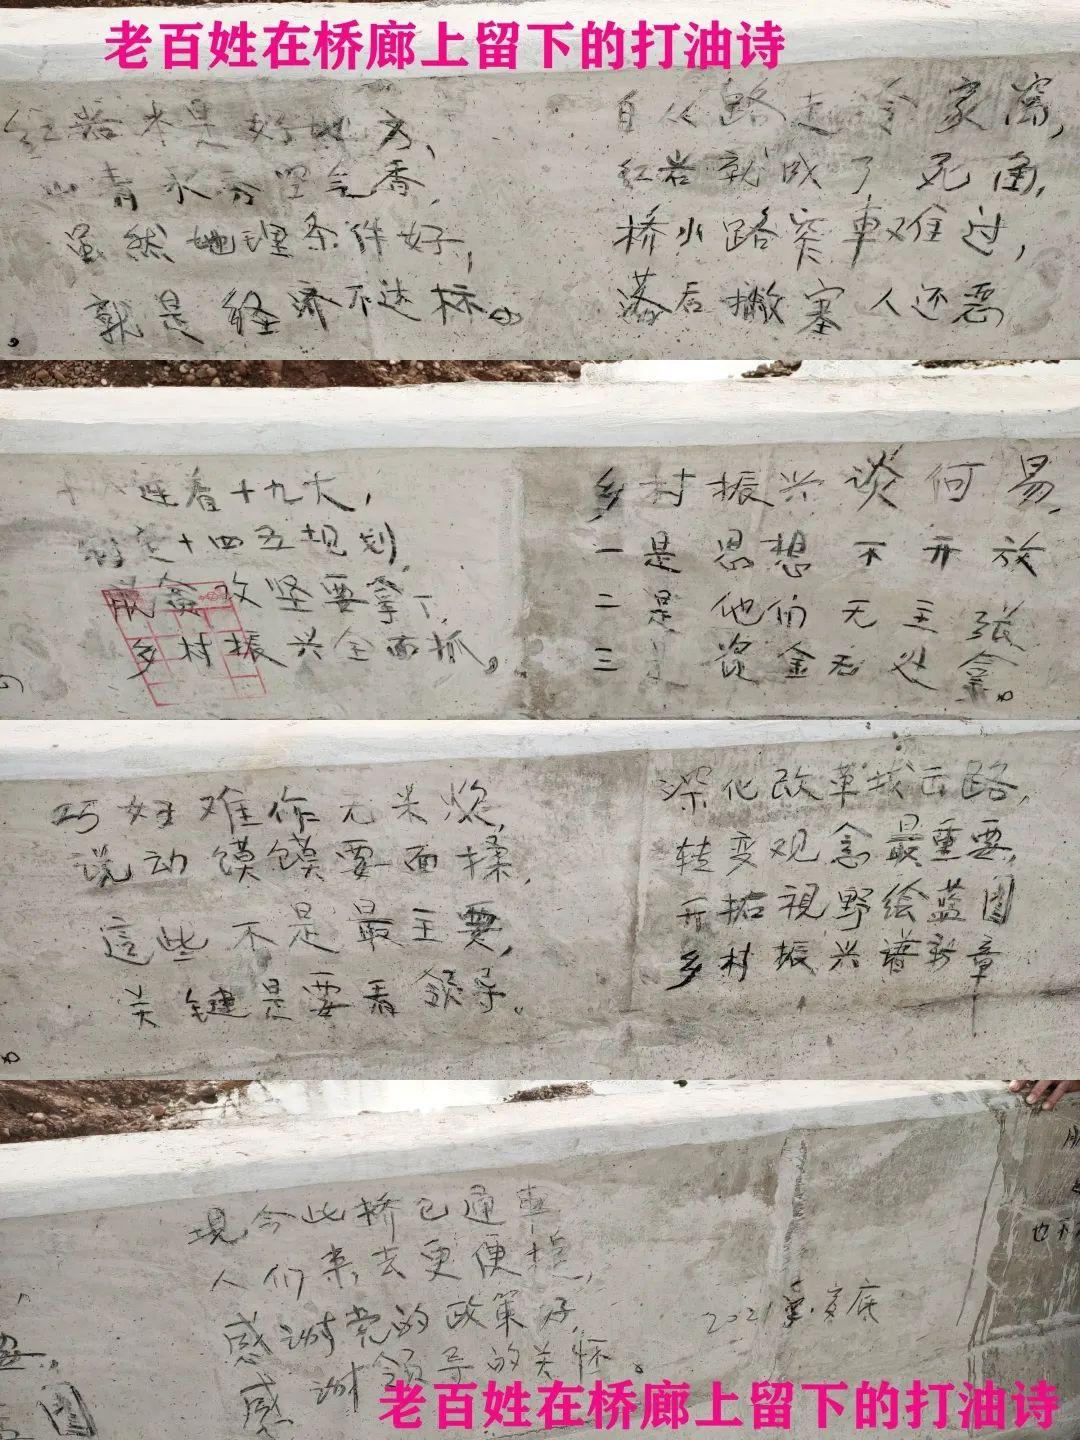 老百姓在桥廊上留下的打油诗
红岩本是好地方,
山青水秀空气香,
虽然地理条件好,
就是经济不达标。
自从路走令家窝,
红岩就成了死角,
桥小路窄車难过,
落后撇塞人还恶
连着十九大,
制定十四五规划
脱贫攻坚要拿下,
乡村振兴全面抓。
乡村振兴谈何易,
一是思想不开放
二是他们无主张
三是资金无处拿。
巧妇难作无米炊,
说动馍馍要面揉,
這些不是最主要,
关键是要看领导。
深化改革找出路,
转变观念最重要,
开拓視野绘蓝图
乡村振兴谱新章
現今此桥已通車
人们来去更便捷,
感谢党的政策好,
感谢领导的关怀。
2021
也不
老百姓在桥廊上留下的打油诗